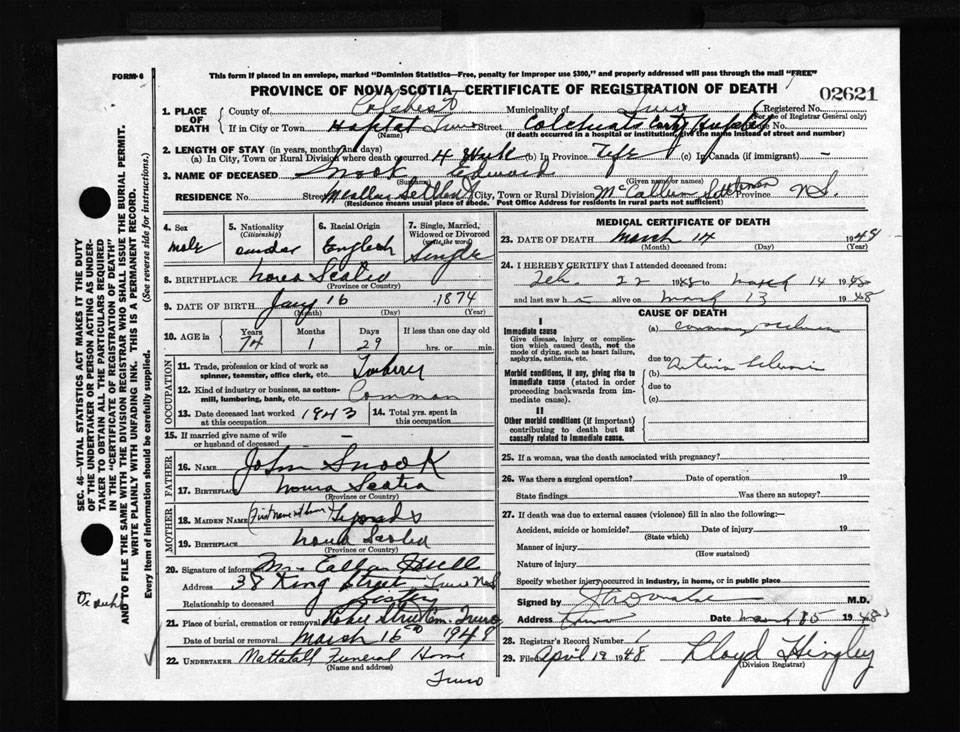 FORM-6
This form if placed in an envelope, marked "Dominion Statistics—Free, penalty for improper use $300," and properly addressed will pass through the mail "FREE"
PROVINCE OF NOVA SCOTIA—CERTIFICATE OF REGISTRATION OF DEATH
02621
1. PLACE OF DEATH
County of Colchest Municipality of Truro Registered No.
(For use of Registrar General only)
If in City or Town Truro Street Hospital Code No.
(Name) (If death occurred in a hospital or institution, give the name instead of street and number)
2. LENGTH OF STAY (in years, months and days)
(a) In City, Town or Rural Division where death occurred 4 Week (b) In Province Life (c) In Canada (if immigrant) -
3. NAME OF DECEASED Snook Edward
(Surname) (Given name or names)
RESIDENCE No. Street City, Town or Rural Division McCallum Settlement Province N.S.
(Residence means usual place of abode. Post Office Address for residents in rural parts not sufficient)
4. Sex male
5. Nationality (Citizenship)
6. Racial Origin English
7. Single, Married, Widowed or Divorced (write the word) Single
8. BIRTHPLACE Nova Scotia
(Province or Country)
9. DATE OF BIRTH Jany 16 1874
(Month) (Day) (Year)
10. AGE in Years Months Days If less than one day old
74 1 29 hrs. or min.
OCCUPATION
11. Trade, profession or kind of work as spinner, teamster, office clerk, etc.
12. Kind of industry or business, as cotton-mill, lumbering, bank, etc. Common
13. Date deceased last worked at this occupation 1943
14. Total yrs. spent in this occupation
15. If married give name of wife or husband of deceased -
FATHER
16. NAME John Snook
17. BIRTHPLACE Nova Scotia
(Province or Country)
MOTHER
18. MAIDEN NAME
19. BIRTHPLACE Nova Scotia
(Province or Country)
20. Signature of informant
Address 38 King Street Truro N.S
Relationship to deceased Sister
21. Place of burial, cremation or removal Robie Street Cem. Truro
Date of burial or removal March 16th 1948
22. UNDERTAKER Mattatall Funeral Home
(Name and address)
Truro
MEDICAL CERTIFICATE OF DEATH
23. DATE OF DEATH March 14 1948
(Month) (Day) (Year)
24. I HEREBY CERTIFY that I attended deceased from:
Feb. 22 1948 to March 14 1948
and last saw h alive on March 13 1948
CAUSE OF DEATH
I
Immediate cause
Give disease, injury or complication which caused death, not the mode of dying, such as heart failure, asphyxia, asthenia, etc.
(a)
due to
Morbid conditions, if any, giving rise to immediate cause (stated in order proceeding backwards from immediate cause).
(b)
due to
(c)
II
Other morbid conditions (if important) contributing to death but not causally related to immediate cause.
25. If a woman, was the death associated with pregnancy?
26. Was there a surgical operation? Date of operation 19
State findings Was there an autopsy?
27. If death was due to external causes (violence) fill in also the following:—
Accident, suicide or homicide? Date of injury 19
(State which)
Manner of injury
(How sustained)
Nature of injury
Specify whether injury occurred in industry, in home, or in public place
Signed by M.D.
Address Truro Date March 15 1948
28. Registrar's Record Number
29. Filed April 19 1948 Lloyd Hingley
(Division Registrar)
SEC. 46—VITAL STATISTICS ACT MAKES IT THE DUTY
OF THE UNDERTAKER OR PERSON ACTING AS UNDER-
TAKER TO OBTAIN ALL THE PARTICULARS REQUIRED
IN THE "CERTIFICATE OF REGISTRATION OF DEATH"
AND TO FILE THE SAME WITH THE DIVISION REGISTRAR WHO SHALL ISSUE THE BURIAL PERMIT.
WRITE PLAINLY WITH UNFADING INK. THIS IS A PERMANENT RECORD.
Every item of information should be carefully supplied. (See reverse side for instructions.)